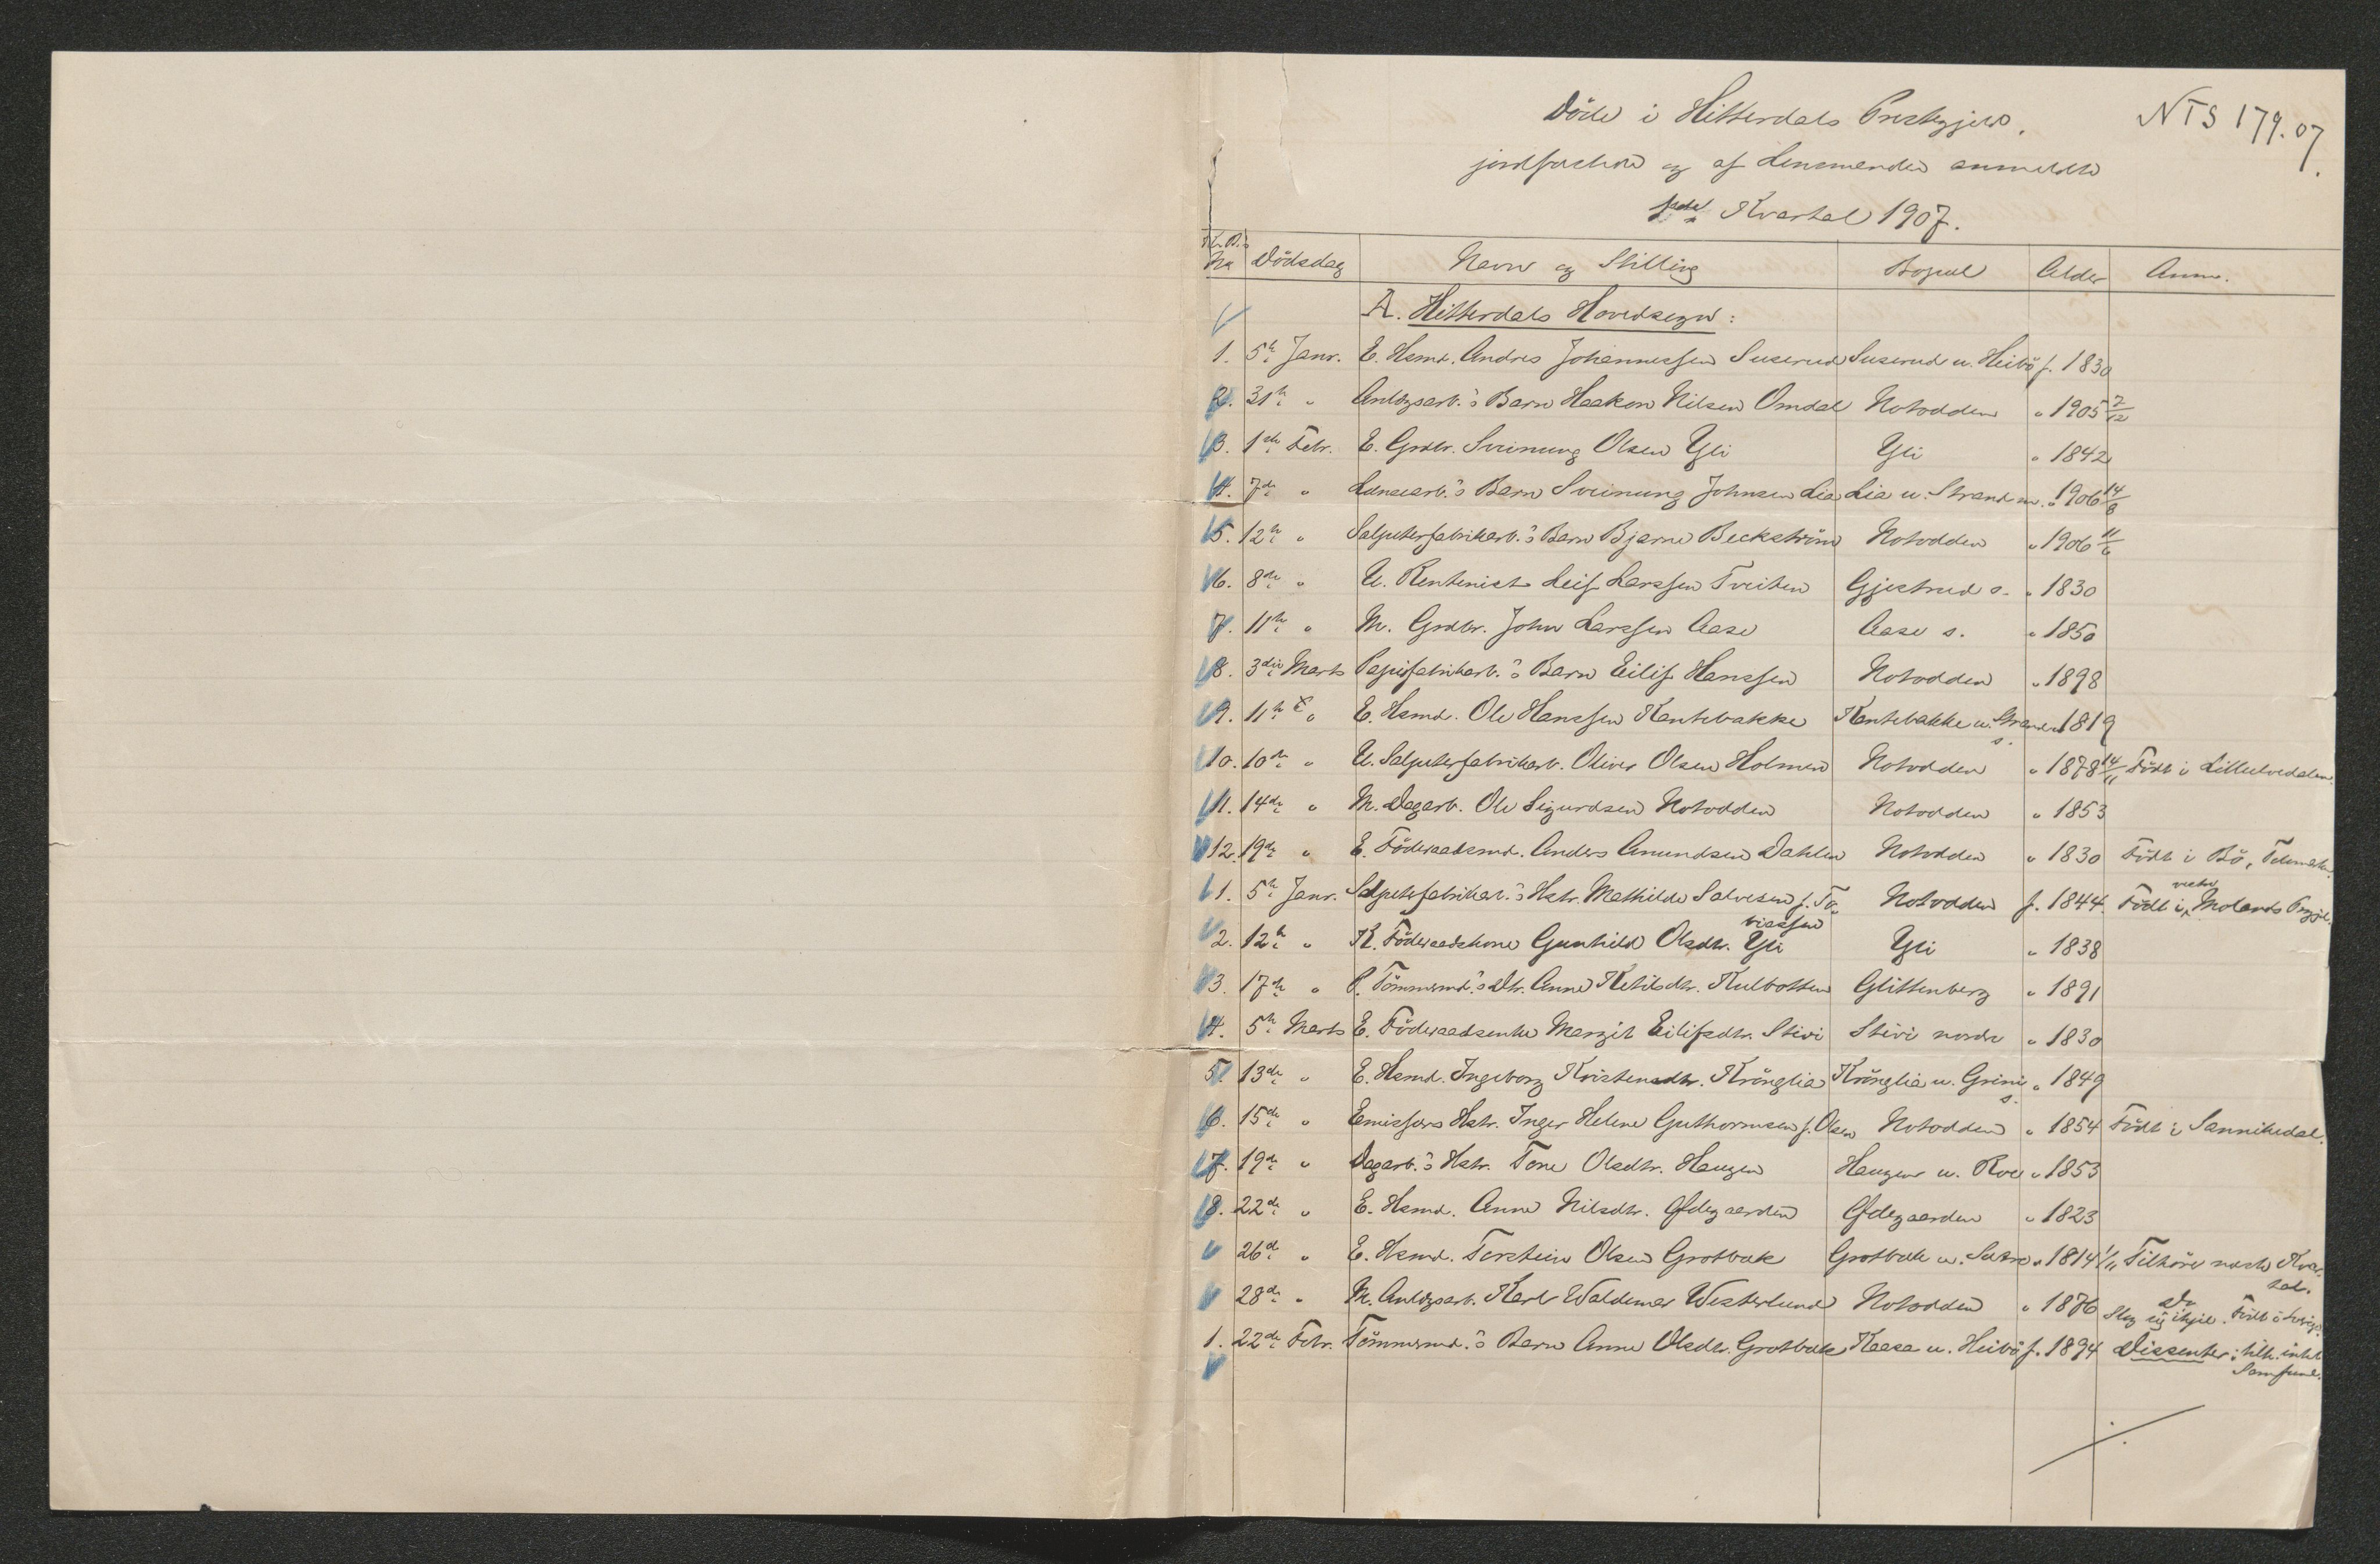 Döde i Hitterdals Prestegjeld,
NTS 179.07.
jordfæstede og af Lensmanden anmeldte
1ste Kvartal 1907.
K. B.s No Dödsdag Navn og Stilling Bopæl Alder Anm.
A. Hitterdals Hovedsogn:
1. 5te Janr. E. Hsmd. Andres Johannessen Suserud Suserud u. Heibö f. 1830
2. 31te " Anlægsarb.'s Barn Haakon Nilsen Omdal Notodden " 1905 7/12
3. 1ste Febr. E. Grdbr. Sveinung Olsen Yli Yli " 1842
4. 7de " Lænsearb.'s Barn Sveinung Johnsen Lia Lia u. Strand m. " 1906 14/6
5. 12te " Salpeterfabrikarb.'s Barn Bjarne Beckström Notodden " 1906 11/6
6. 8de " U. Rentenist Leif Larssen Tveiten Gjestrud s. " 1830
7. 11te " M. Grdbr. John Larssen Aase Aase s. " 1850
8. 3die Marts Papirfabrikarb.'s Barn Eilif Hanssen Notodden " 1898
9. 11te " E. Hsmd. Ole Hanssen Kantebakke Kantebakke u. Strand s. " 1819
10. 10de " U. Salpeterfabrikarb. Oliver Olsen Holmen Notodden " 1878 14/11 Födt i Lilleelvedalen.
11. 14de " M. Dagarb. Ole Sigurdsen Notodden Notodden " 1853
12. 19de " E. Föderaadsmd. Anders Amundsen Dahlen Notodden " 1830 Födt i Bö, Telemark.
1. 5te Janr. Salpeterfabrikarb.'s Hstr. Mathilde Salvesen f. To- Notodden f. 1844. Födt i vestre Molands Prgjd.
biassen
2. 12te " K. Föderaadskone Gunhild Olsdtr. Yli Yli " 1838
3. 17de " P. Tömmermd.'s Dtr. Anne Ketilsdtr. Kulbotten Glittenberg " 1891
4. 5te Marts E. Föderaadsenke Margit Eilifsdtr. Stivi Stivi nordre " 1830
5. 13de " E. Hsmd. Ingeborg Kristensdtr. Krånglia Krånglia u. Grini s. " 1849
6. 15de " Emissærs Hstr. Inger Helene Guthormsen f. Olsen Notodden " 1854 Födt i Sannikedal.
7. 19de " Dagarb.'s Hstr. Tone Olsdtr. Haugen Haugen u. Roe " 1853
8. 22de " E. Hsmd. Anne Nilsdtr. Ødegaarden Ødegaarden " 1823
26de " E. Hsmd. Torstein Olsen Grotbæk Grotbæk u. Sætre " 1814 1/11 Tilhörer næste Kvar-
tal.
28de " M. Anlægsarb. Karl Waldemar Westerlund Notodden " 1876 Do
Slog sig ihjel. Födt i Sverige.
1. 22de Febr. Tömmermd.'s Barn Anne Olsdtr. Grotbæk Kaasa u. Heibö f. 1894 Dissenter; tilh. intet
Samfund.